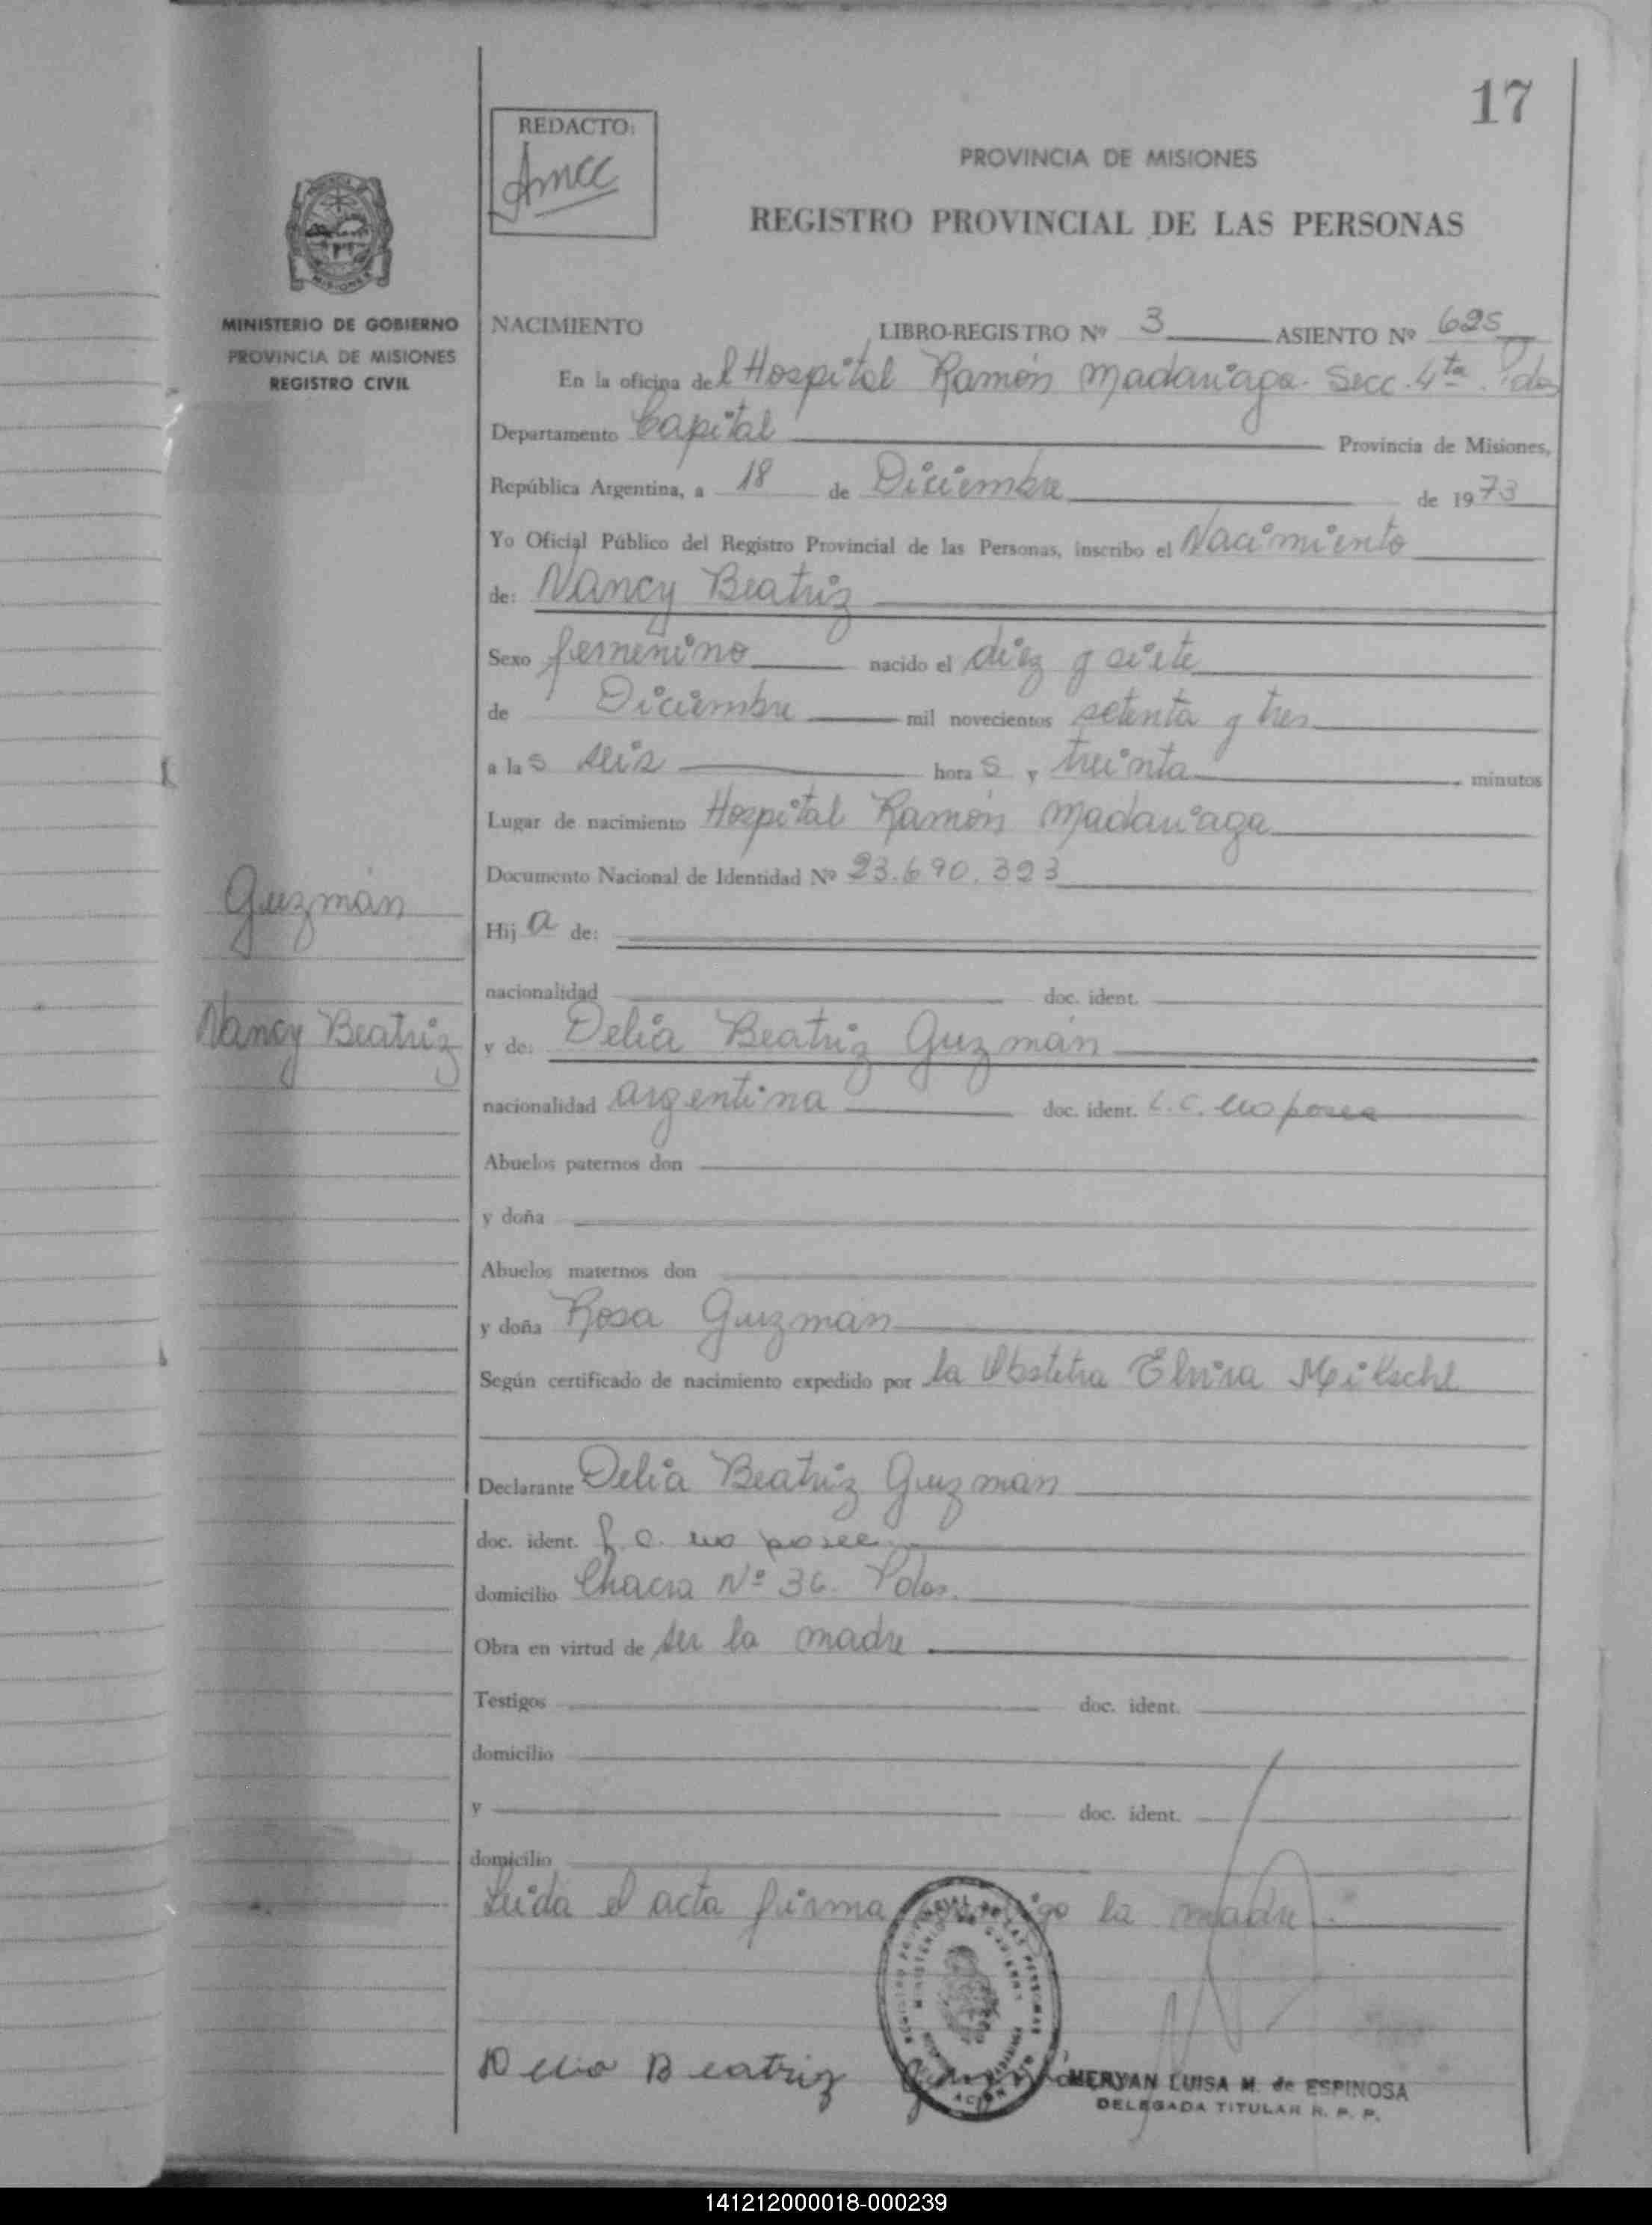 17
REDACTO:
Amcc
PROVINCIA DE MISIONES
REGISTRO PROVINCIAL DE LAS PERSONAS
MISIONES
MINISTERIO DE GOBIERNO
PROVINCIA DE MISIONES
REGISTRO CIVIL
NACIMIENTO LIBRO-REGISTRO Nº 3 ASIENTO Nº 625
En la oficina del Hospital Ramón Madariaga. Secc. 4ta. Pdas
Departamento Capital Provincia de Misiones,
República Argentina, a 18 de Diciembre de 1973
Yo Oficial Público del Registro Provincial de las Personas, inscribo el Nacimiento
de: Nancy Beatriz
Sexo femenino nacido el diez y siete
de Diciembre mil novecientos setenta y tres
a las seis horas y treinta minutos
Lugar de nacimiento Hospital Ramón Madariaga
Documento Nacional de Identidad Nº 23.690.323
Guzmán
Hija de:
nacionalidad doc. ident.
Nancy Beatriz
y de: Delia Beatriz Guzmán
nacionalidad argentina doc. ident. L.C. no posee
Abuelos paternos don
y doña
Abuelos maternos don
y doña Rosa Guzmán
Según certificado de nacimiento expedido por la Obstetra Elvira
Declarante Delia Beatriz Guzmán
doc. ident. L.C. no posee
domicilio Chacra Nº 36. Pdas.
Obra en virtud de ser la madre
Testigos doc. ident.
domicilio
y doc. ident.
domicilio
Leida el acta firma conmigo la madre.
Delia Beatriz Guzmán
MERYAN LUISA M. de ESPINOSA
DELEGADA TITULAR R. P. P.
141212000018-000239